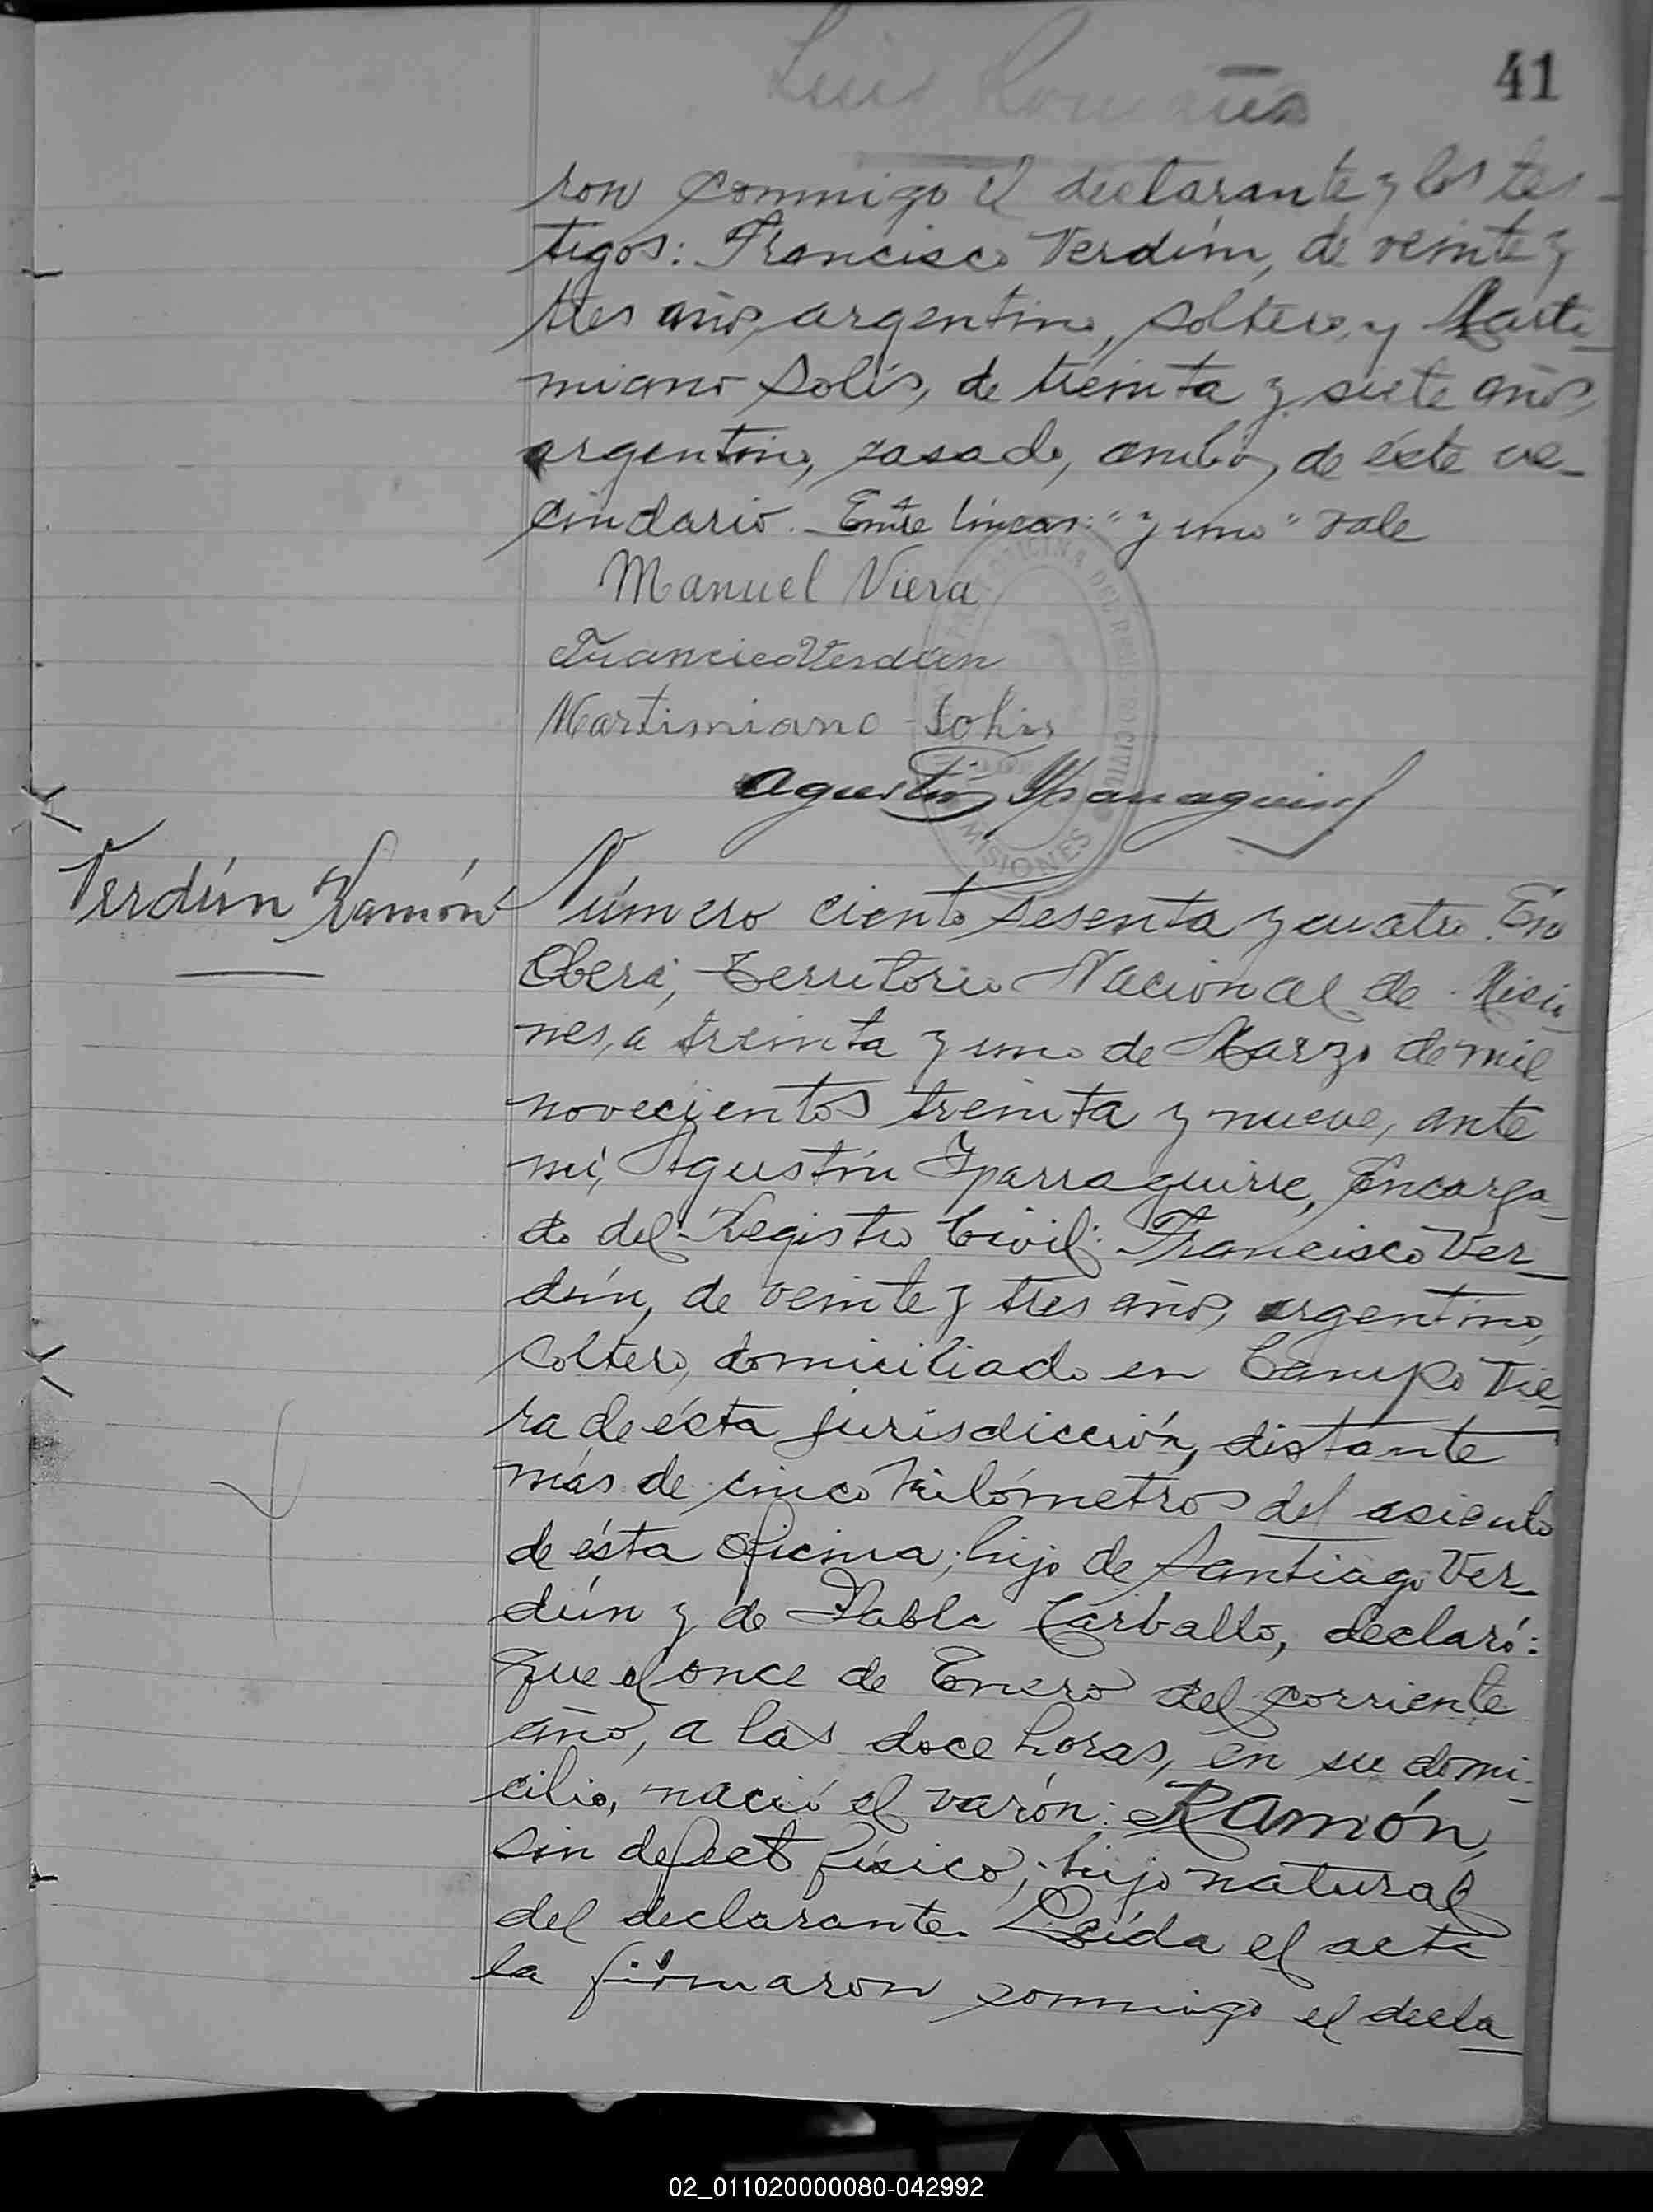 41
Luis
ron conmigo el declarante y los tes-
tigos: Francisco Verdún, de veinte y
tres años, argentino, soltero, y Marti-
miano Solís, de treinta y siete años,
argentino, casado, ambos de éste ve-
cindario. Entre líneas: "y uno" vale
Manuel Viera
Francico Verdun
Martimiano Solis
Agustín Yparraguirre
OFICINA DEL REGISTRO CIVIL
MISIONES
Verdún Ramón
Número ciento sesenta y cuatro. En
Oberá, Territorio Nacional de Misio-
nes, a treinta y uno de Marzo de mil
novecientos treinta y nueve, ante
mí, Agustín Yparraguirre, Encarga-
do del Registro Civil: Francisco Ver-
dún, de veinte y tres años, argentino,
soltero, domiciliado en Campo Vie-
ra de ésta jurisdicción, distante
más de cinco kilómetros del asiento
de ésta oficina; hijo de Santiago Ver-
dún y de Pabla Carballo, declaró:
Que el once de Enero del corriente
año, a las doce horas, en su domi-
cilio, nació el varón: Ramón,
sin defecto físico; hijo natural
del declarante. Leída el acta
la firmaron conmigo el decla-
02_011020000080-042992